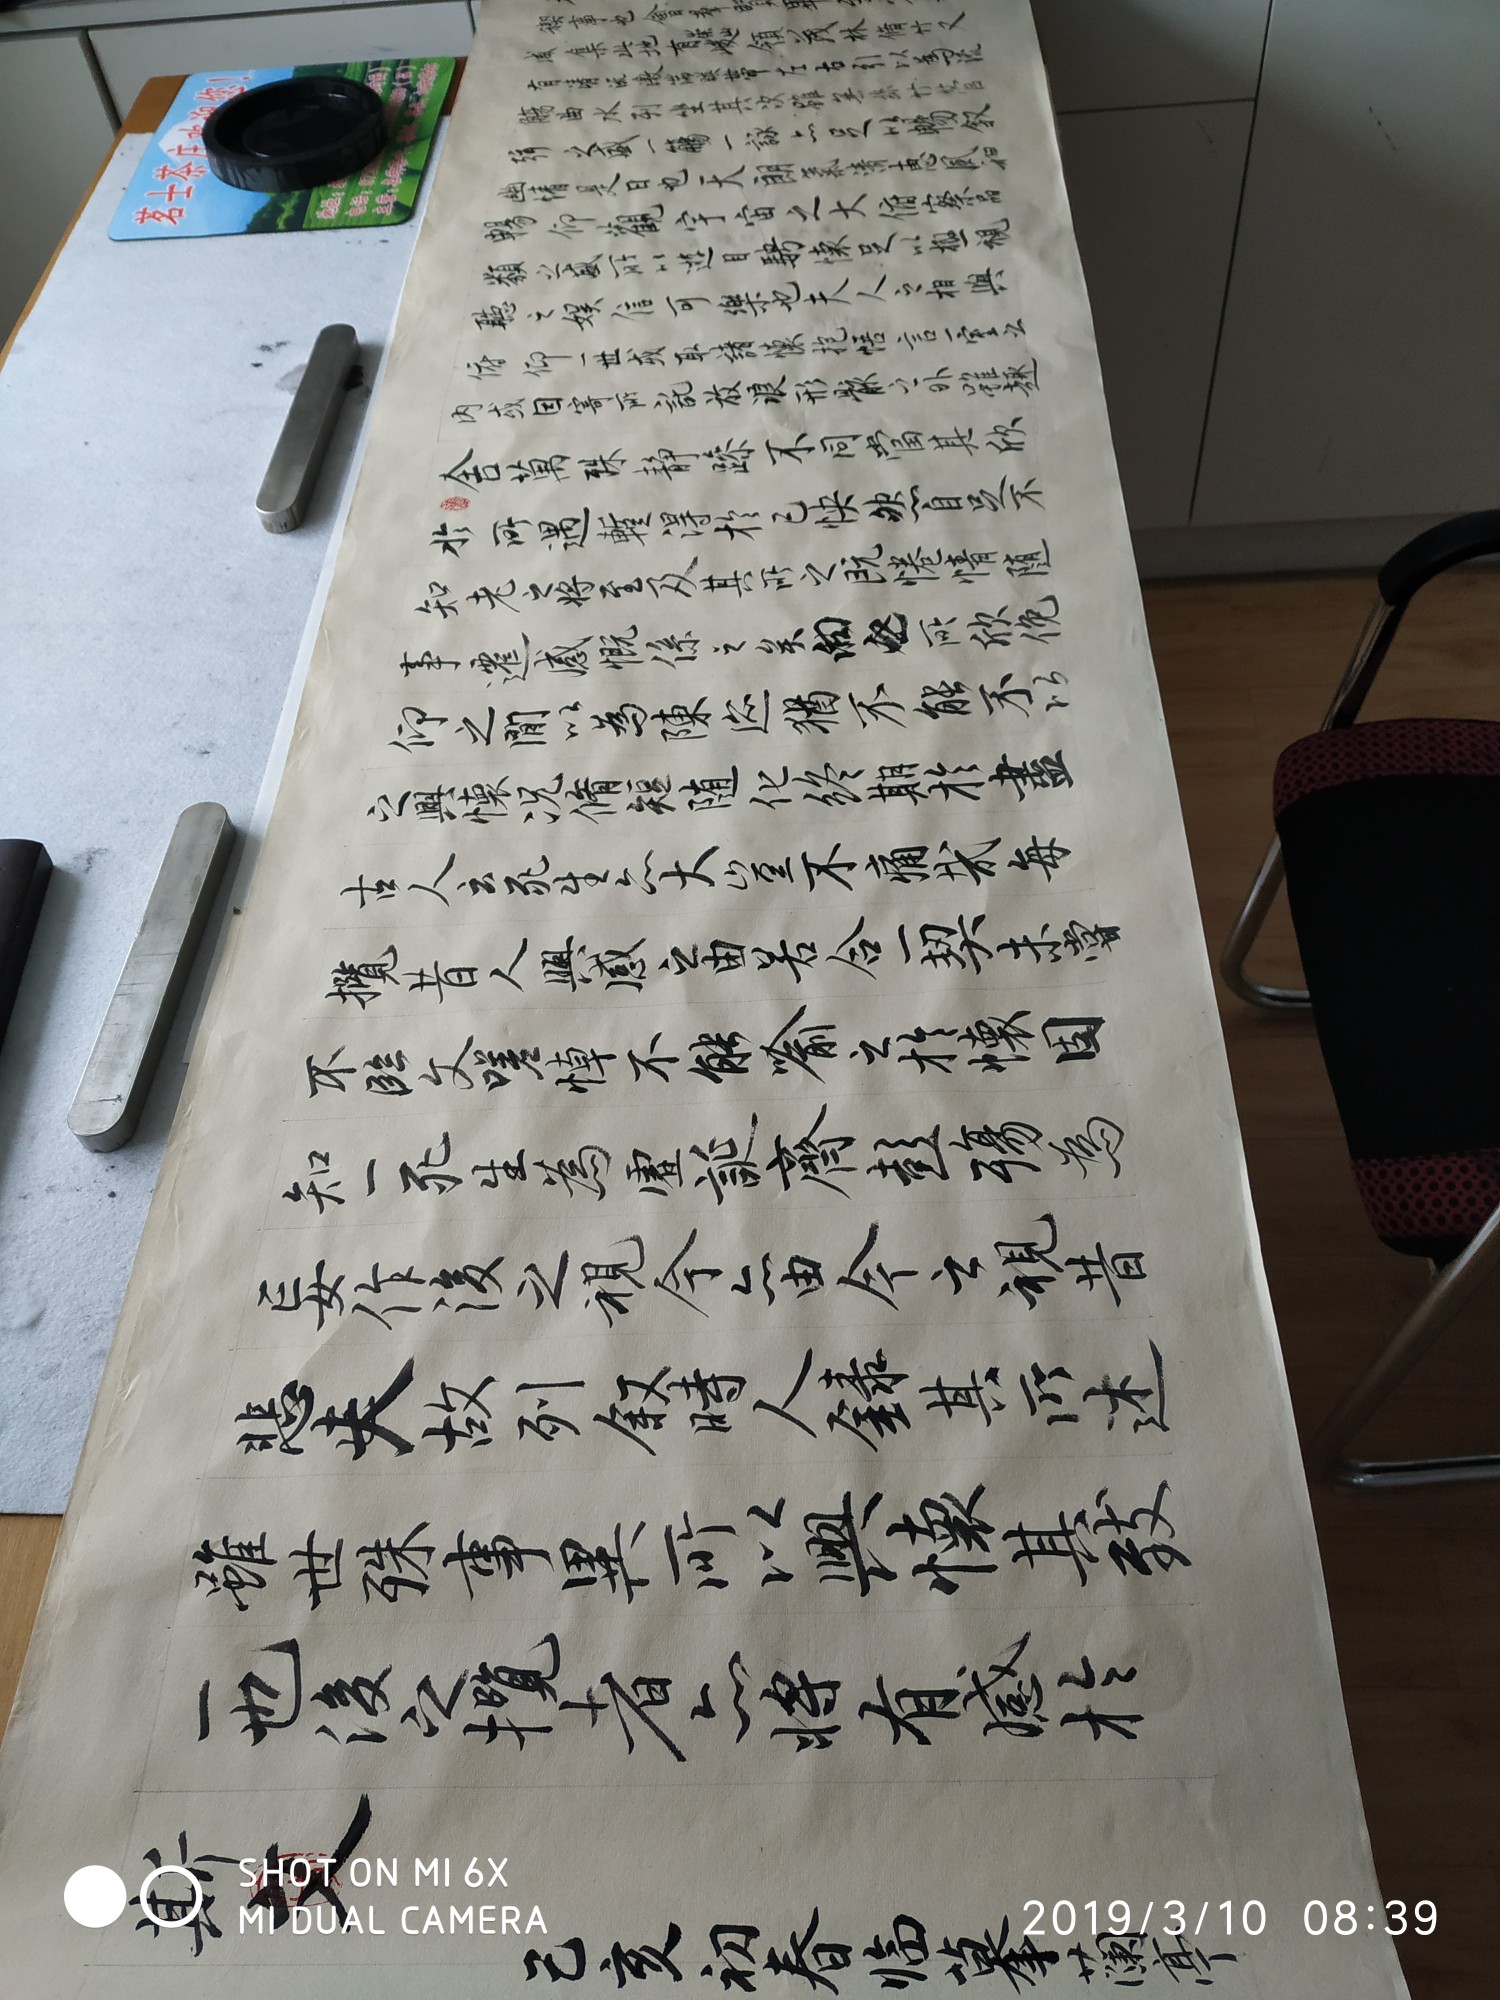 茗士茶庄欢迎您!
禊事也
集此地有峻領茂林脩竹又
有清流激湍映帶左右引以為流
觴曲水列坐其次雖無絲竹管弦
之盛一觴一詠亦足以暢叙
幽情是日也天朗氣清惠風和
暢仰觀宇宙之大俯察品
類之盛所以遊目騁懷足以極視
聽之娛信可樂也夫人之相與
俯仰一世或取諸懷抱悟言一室之
内或因寄所託放浪形骸之外雖趣
舍萬殊静躁不同當其欣
於所遇輙得於己怏然自足不
知老之將至及其所之既惓情隨
事遷感慨係之矣向之所欣俛
仰之閒以為陳迹猶不能不以
之興懷況脩短隨化終期於盡
古人云死生亦大豈不痛哉每
攬昔人興感之由若合一契未嘗
不臨文嗟悼不能喻之於懷固
知一死生為虛誕齊彭殤為
妄作後之視今亦由今之視昔
悲夫故列叙時人錄其所述
雖世殊事異所以興懷其致
一也後之攬者亦將有感於
斯文
己亥初春臨摹蘭亭
SHOT ON MI 6X
MI DUAL CAMERA
2019/3/10 08:39